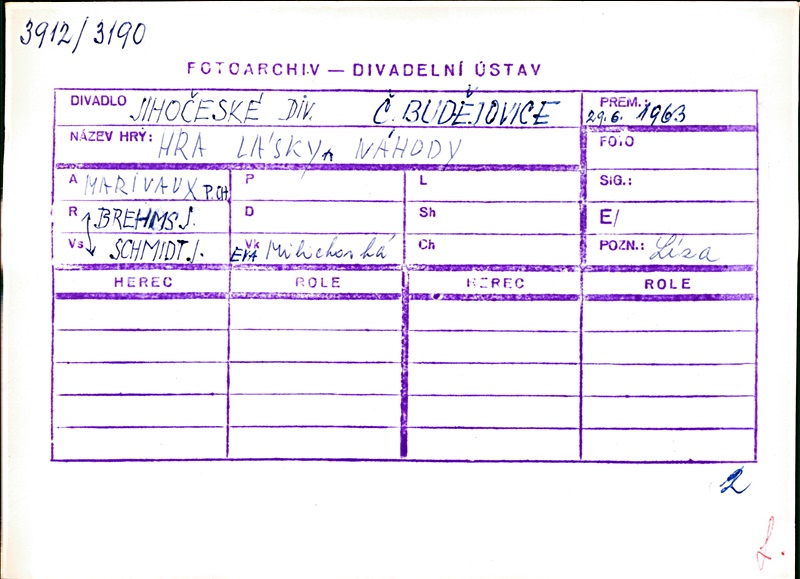 3912/3190
FOTOARCHIV — DIVADELNÍ ÚSTAV
DIVADLO JIHOČESKÉ DIV. Č. BUDĚJOVICE PREM.: 29.6. 1963
NÁZEV HRY: HRA LÁSKY A NÁHODY FOTO
A MARIVAUX P.CH. P L SIG.:
R BREHMS J. D Sh E/
Vs SCHMIDT J. Vk EVA Milichovská Ch POZN.: Líza
HEREC ROLE HEREC ROLE
2